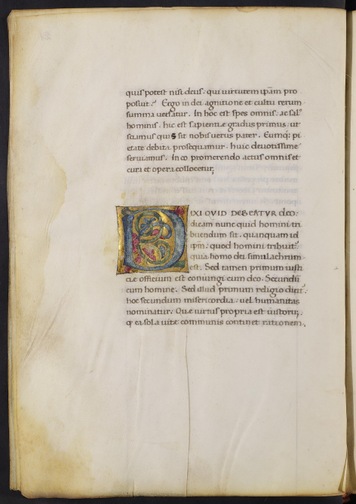 quis potest nisi deus, qui virtutem ipsam pro
posuit? Ergo in dei agnitione et cultu rerum
summa versatur. In hoc est spes omnis, ac salꝰ
hominis. hic est sapientiae gradus primus, ut
sciamus quis sit nobis verus pater. Eumq; pi
etate debita prosequamur. huic devotissime
serviamus. In eo promerendo actus omnis et
cura et opera collocetur.
DIXI QVID DEBEATVR deo:
dicam nunc quid homini tri
buendum sit. quanquam id
ipm. quod homini tribuis
quia homo dei simulachrum
est. Sed tamen primum iusti
tiae officium est coniungi cum deo. Secundū
cum homine. Sed illud primum religio dicit̃.
hoc secundum misericordia. vel humanitas
nominatur. Quae virtus propria est iustorum,
ea sola vitae communis continet rationem.